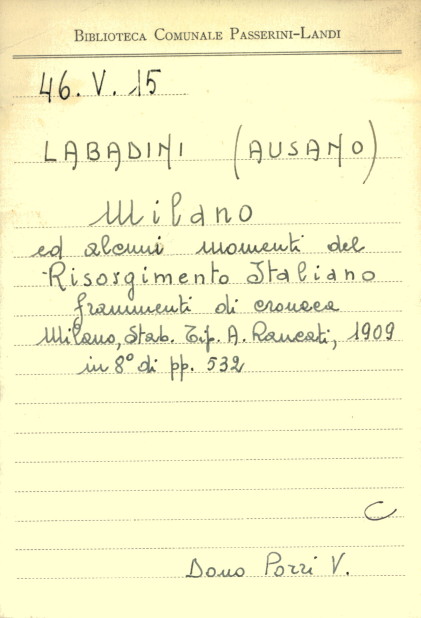 BIBLIOTECA COMUNALE PASSERINI-LANDI
46. V. 15
LABADINI (AUSANO)
Milano
ed alcuni momenti del
Risorgimento Italiano
frammenti di cronaca
Milano, Stab. Tip. A. Rancati, 1909
in 8° di pp. 532
C
Dono Pozzi V.